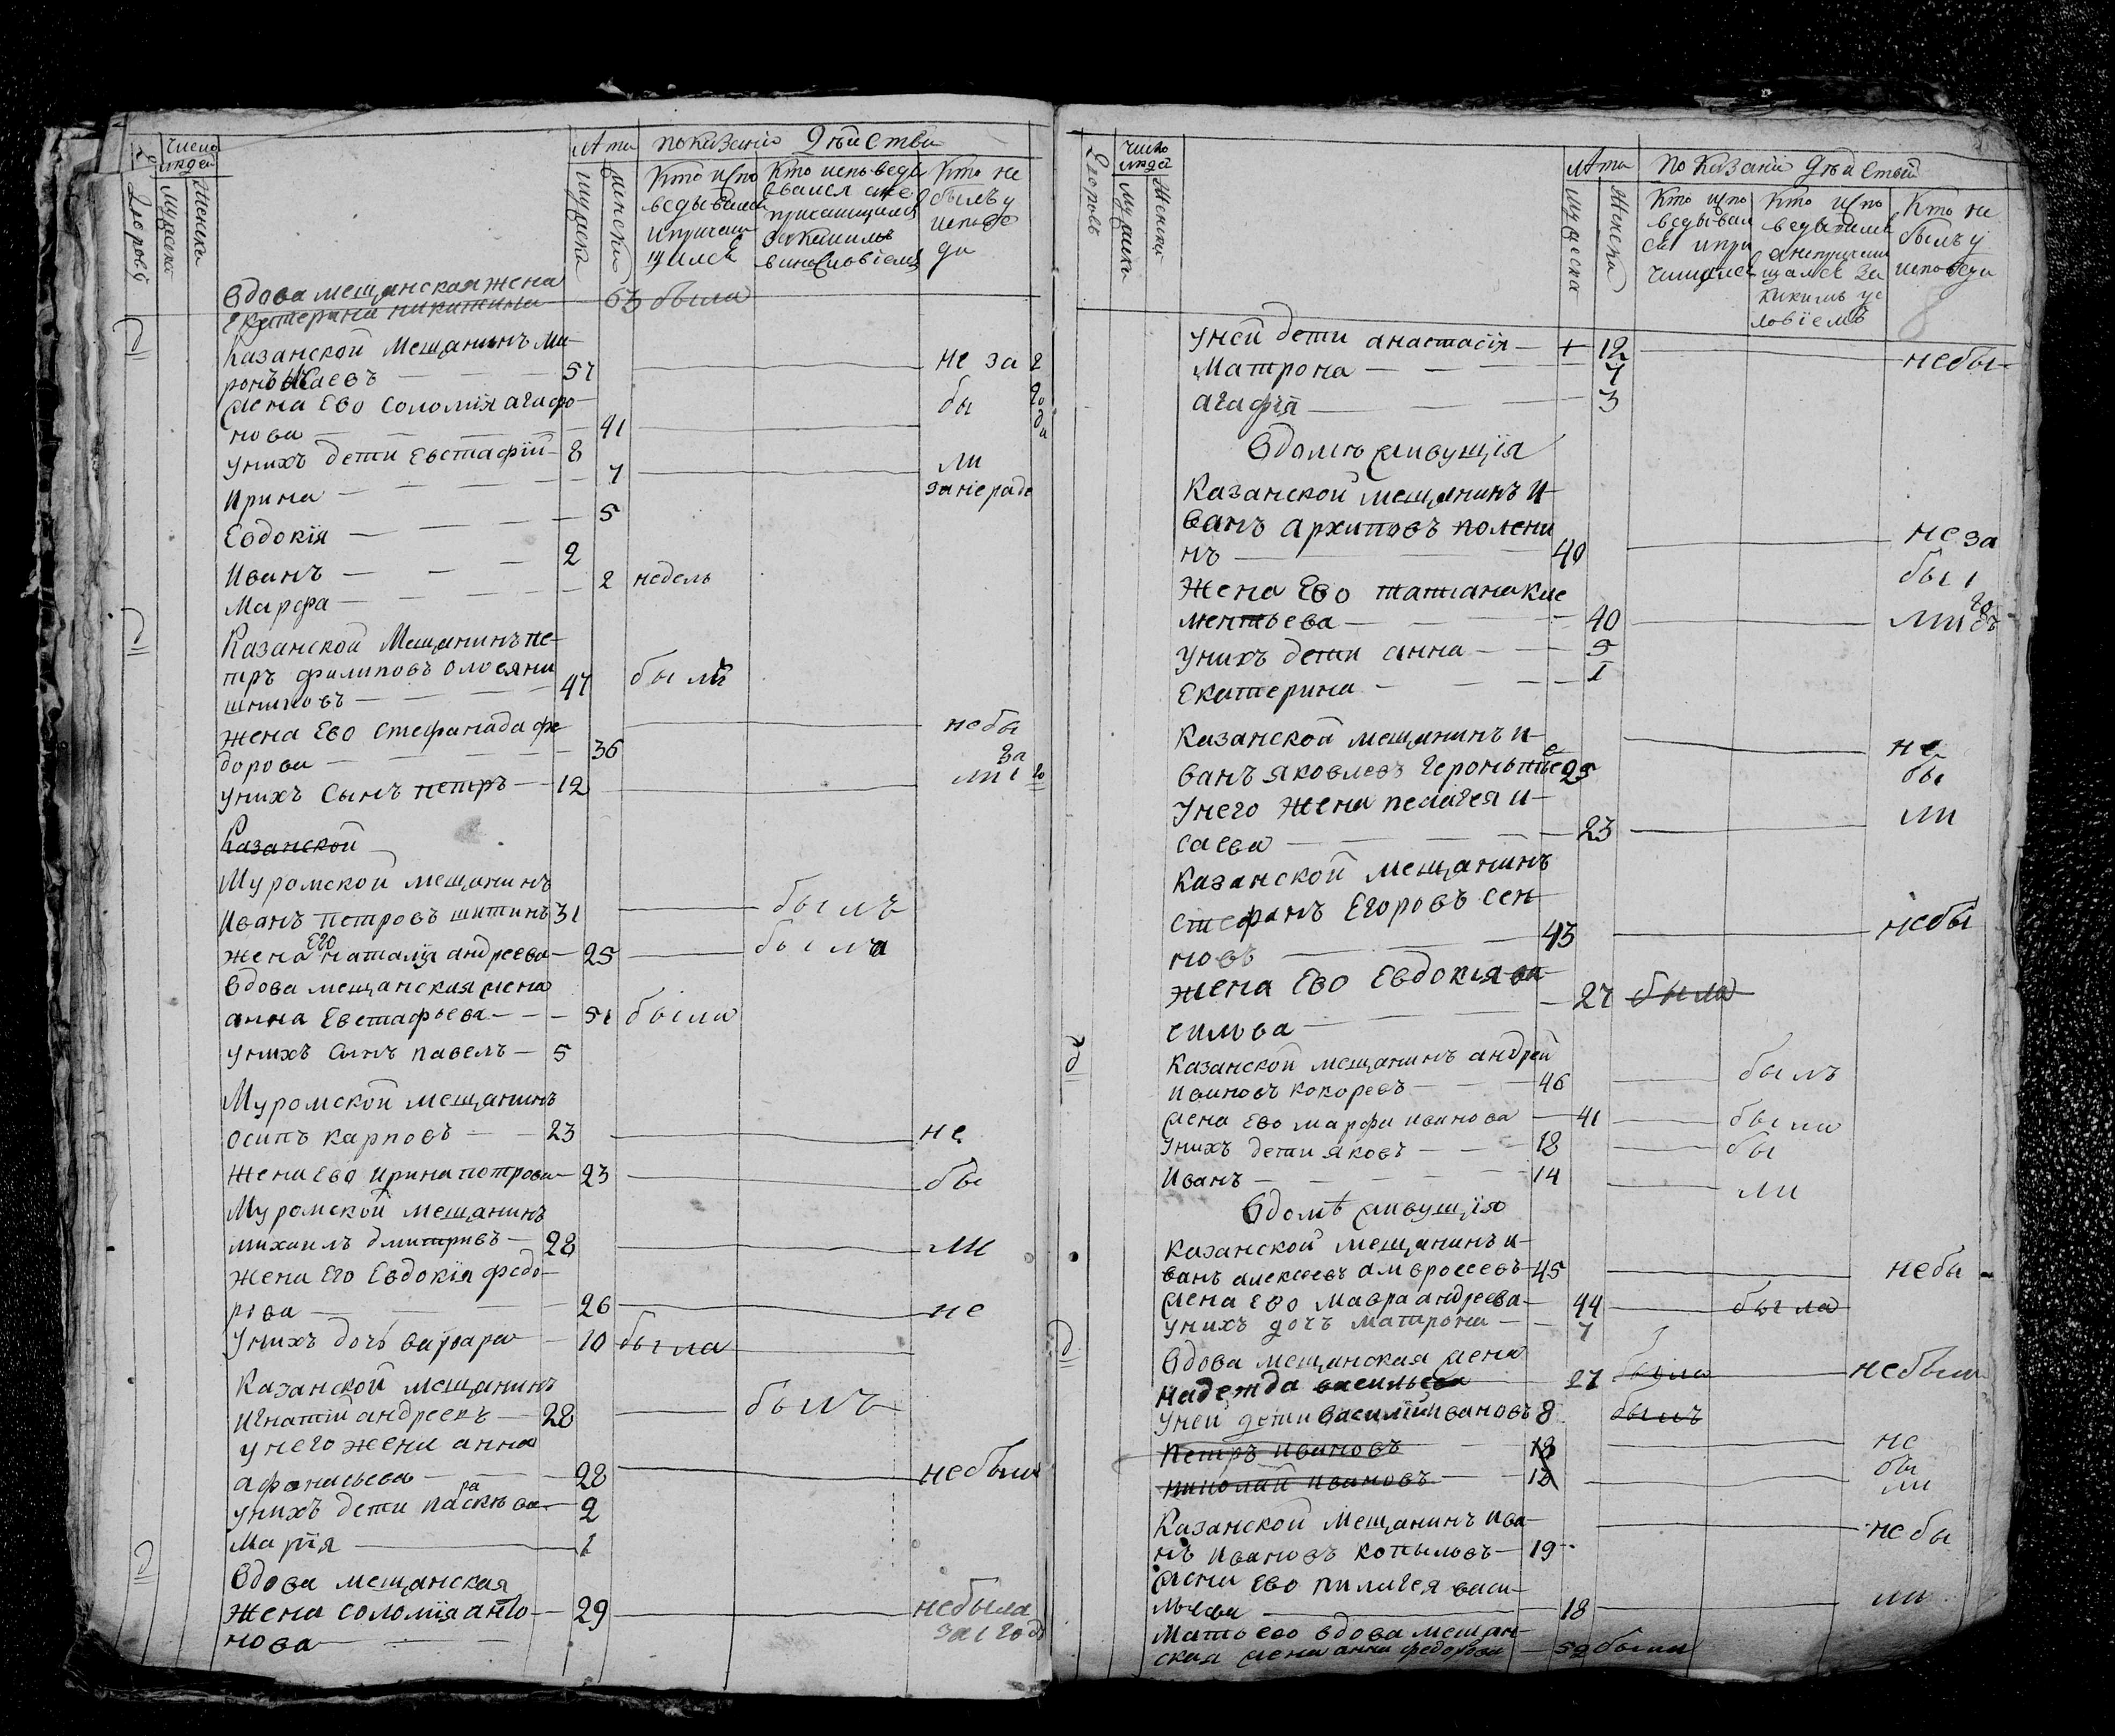 Дворовъ
число людей
мужеска
женска
лѣта
мужеска
женска
показанiе дѣйства
Кто испо
ведывался
и причащ
щился
Кто исповеды
вался а не
причащился
за какимъ
винословiемъ
Кто не
былъ у
испове
ди
вдова мещанская жена
Екатерина никитина — 63 была
Казанской мещанинъ ми-
ронъ Исаевъ — 57 не за 2
жена Ево Соломия агафо- бы го
нова — 41 да
унихъ дети Евстафiй — 8 ли
Ирина — 7 занераде
Евдокiя — 5
Иванъ — 2
Марфа — 2 недель
Казанской Мещанинъ пе-
тръ филиповъ оловяни
шниковъ — 47 былъ
жена Ево Стефанада фе небы
дорова — 36 за
унихъ Сынъ петръ — 12 ли 1 го
Казанской
Муромской мещанинъ
Иванъ петровъ шитинъ 31 — былъ
жена Его наталiя андреева — 25 — была
вдова мещанская жена
анна Евстафьева — 51 была
унихъ сынъ павелъ — 5
Муромской мещанинъ
осипъ карповъ — 23 — не
жена Ево Ирина петрова — 23 — бы
Муромской мещанинъ
михаилъ дмитривъ — 28 — ли
жена Его Евдокiя федо-
рова — 26 — не
унихъ дочь варвара — 10 была
Казанской мещанинъ
Игнатiй андреевъ — 28 — былъ
унего жена анна
афонасьева — 28 — небыли
унихъ дети параскѣва — 2
Марiя — 1
вдова мещанская
жена соломiя анто- — 29 — небыла
нова — за 1 годъ
Дворовъ
число людей
мужеска
женска
лѣта
мужеска
женска
показанiи дѣйствъ
Кто испо
ведывал
ся и при
чащался
Кто испо
ведывался
а непричаш
щался за
какимъ ус
ловiемъ
Кто не
былъ у
исповеди
8
Уней дети анастасiя — + 12 — небы-
Матрона — 7
агафiя — 3
вдомѣ живущiя
Казанской мещанинъ и-
ванъ архиповъ полени
нъ — 40 — не за
жена Ево татiана кле бы 1
ментьева — 40 — ли годъ
унихъ дети анна — 5
Екатерина — 1
Казанской мещанинъ и- — не
ванъ яковлевъ 25 бы
Унего жена пелагея и- ли
саева — 23
Казанской мещанинъ
стефанъ Егоровъ сен
новъ — 43 — небы
жена Ево Евдокiя ва
сильева — 27 была
Казанской мещанинъ андрей
ивановъ кокоревъ — 46 — былъ
жена Ево марфа иванова — 41 — была
Унихъ дети яковъ — 18 — бы
Иванъ — 14 — ли
вдомѣ живущiя
Казанской мещанинъ и-
ванъ алексеевъ амвросеевъ — 45 — небы
жена Ево Мавра андреева — 44 — была
унихъ дочь матрона — 7
вдова мещанская жена
надежда васильева — 27 была — небыли
Уней дети василiй ивановъ 8 былъ
петръ ивановъ — 18 — не
николай ивановъ — 12 — бы ли
Казанской мещанинъ ива- — небы
нъ ивановъ копыловъ — 19
жена Ево пилагея васи-
льева — 18 — ли
Мать ево вдова мещан-
ская жена анна федорова — 52 была